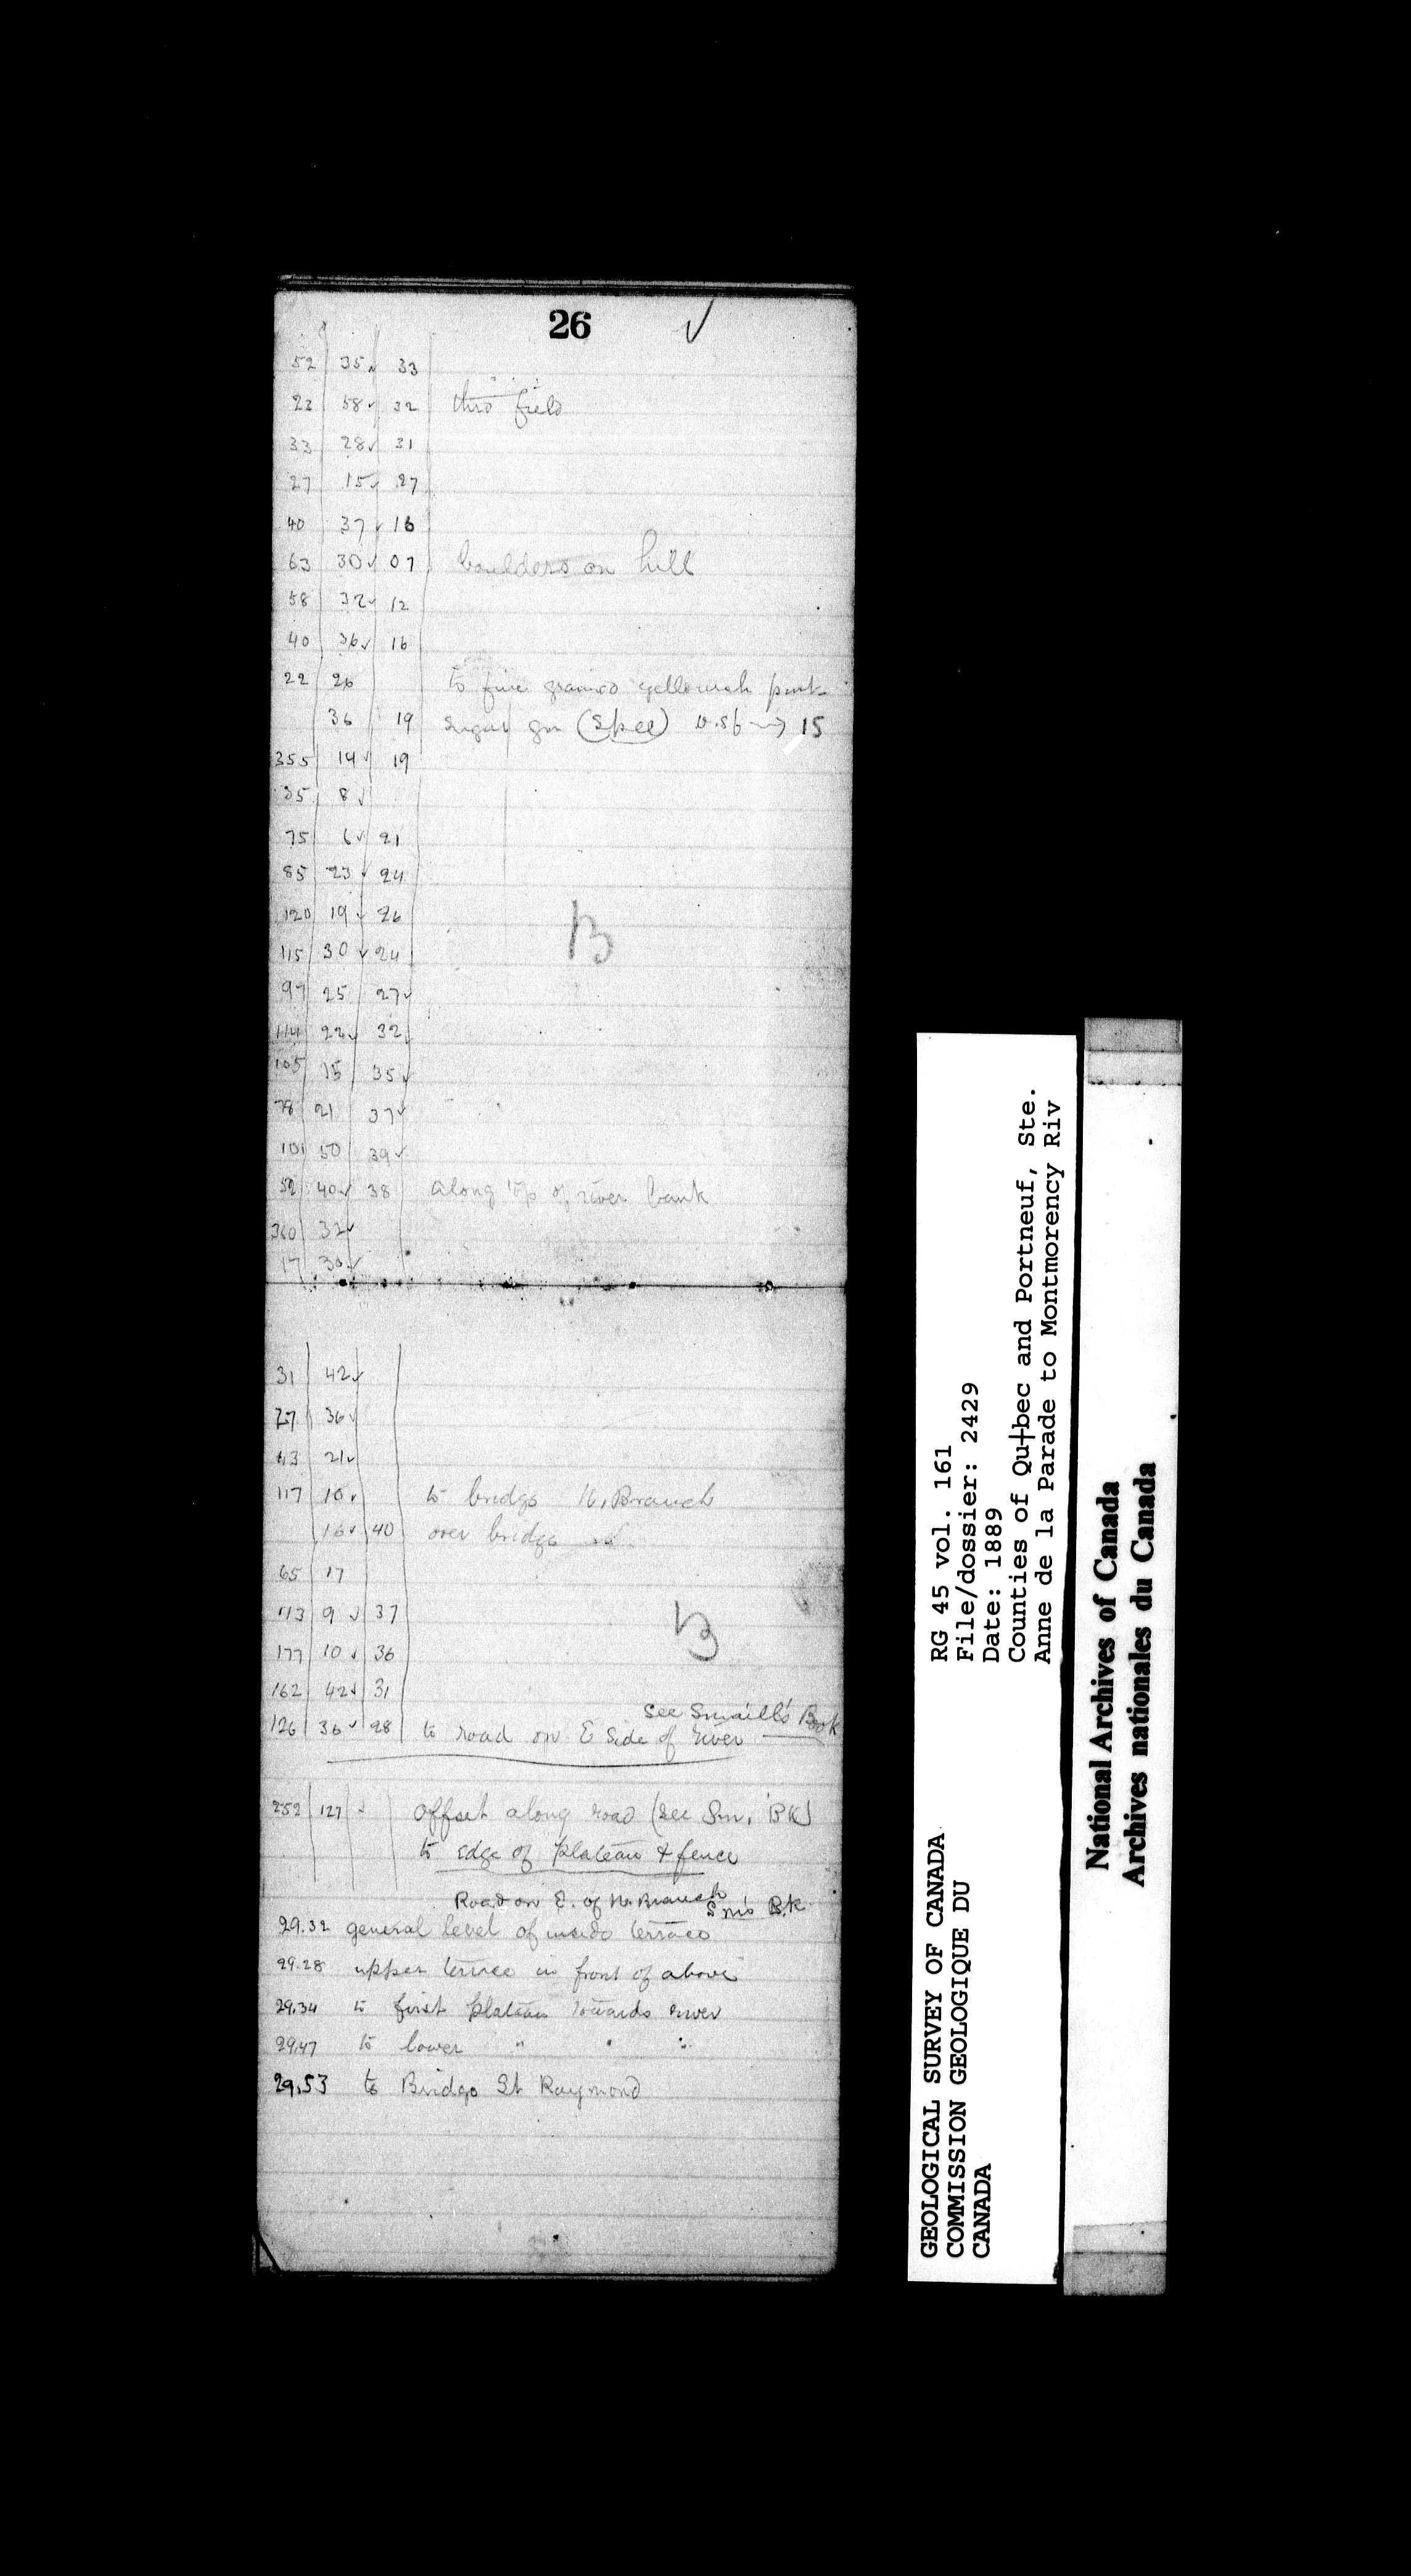 26 ✓
52 35 ✓ 33
22 58 ✓ 32 thro field
33 28 ✓ 31
27 15 ✓ 27
40 37 ✓ 16
63 30 ✓ 07 boulders on hill
58 32 ✓ 12
40 36 ✓ 16
22 26 to fine grained yellowish pink
36 19 sugar gn (Spec) 15
355 14 ✓ 19
35 8 ✓
75 6 ✓ 21
85 23 ✓ 24
120 19 ✓ 26
B
115 30 ✓ 24
97 25 27 ✓
114 22 ✓ 32
105 15 35 ✓
78 21 37 ✓
101 50 39 ✓
52 40 ✓ 38 along top of river bank
360 32 ✓
17 30 ✓
31 42 ✓
27 36 ✓
43 21 ✓
117 10 ✓ to bridge N. Branch
16 ✓ 40 over bridge
65 17
113 9 ✓ 37
B
177 10 ✓ 36
162 42 ✓ 31
See Smaill's Book
126 36 ✓ 28 to road on E side of river
252 127 ✓ offset along road (see Sm. BK)
to edge of plateau & fence
Road on E. of N. Branch Sm's B.k
29.32 general level of inside terrace
29.28 upper terrace in front of above
29.34 to first plateau towards river
29.47 to lower " " "
29.53 to Bridge St Raymond
RG 45 vol. 161
File/dossier: 2429
Date: 1889
Counties of Qu†bec and Portneuf, Ste.
Anne de la Parade to Montmorency Riv
GEOLOGICAL SURVEY OF CANADA
COMMISSION GEOLOGIQUE DU
CANADA
National Archives of Canada
Archives nationales du Canada